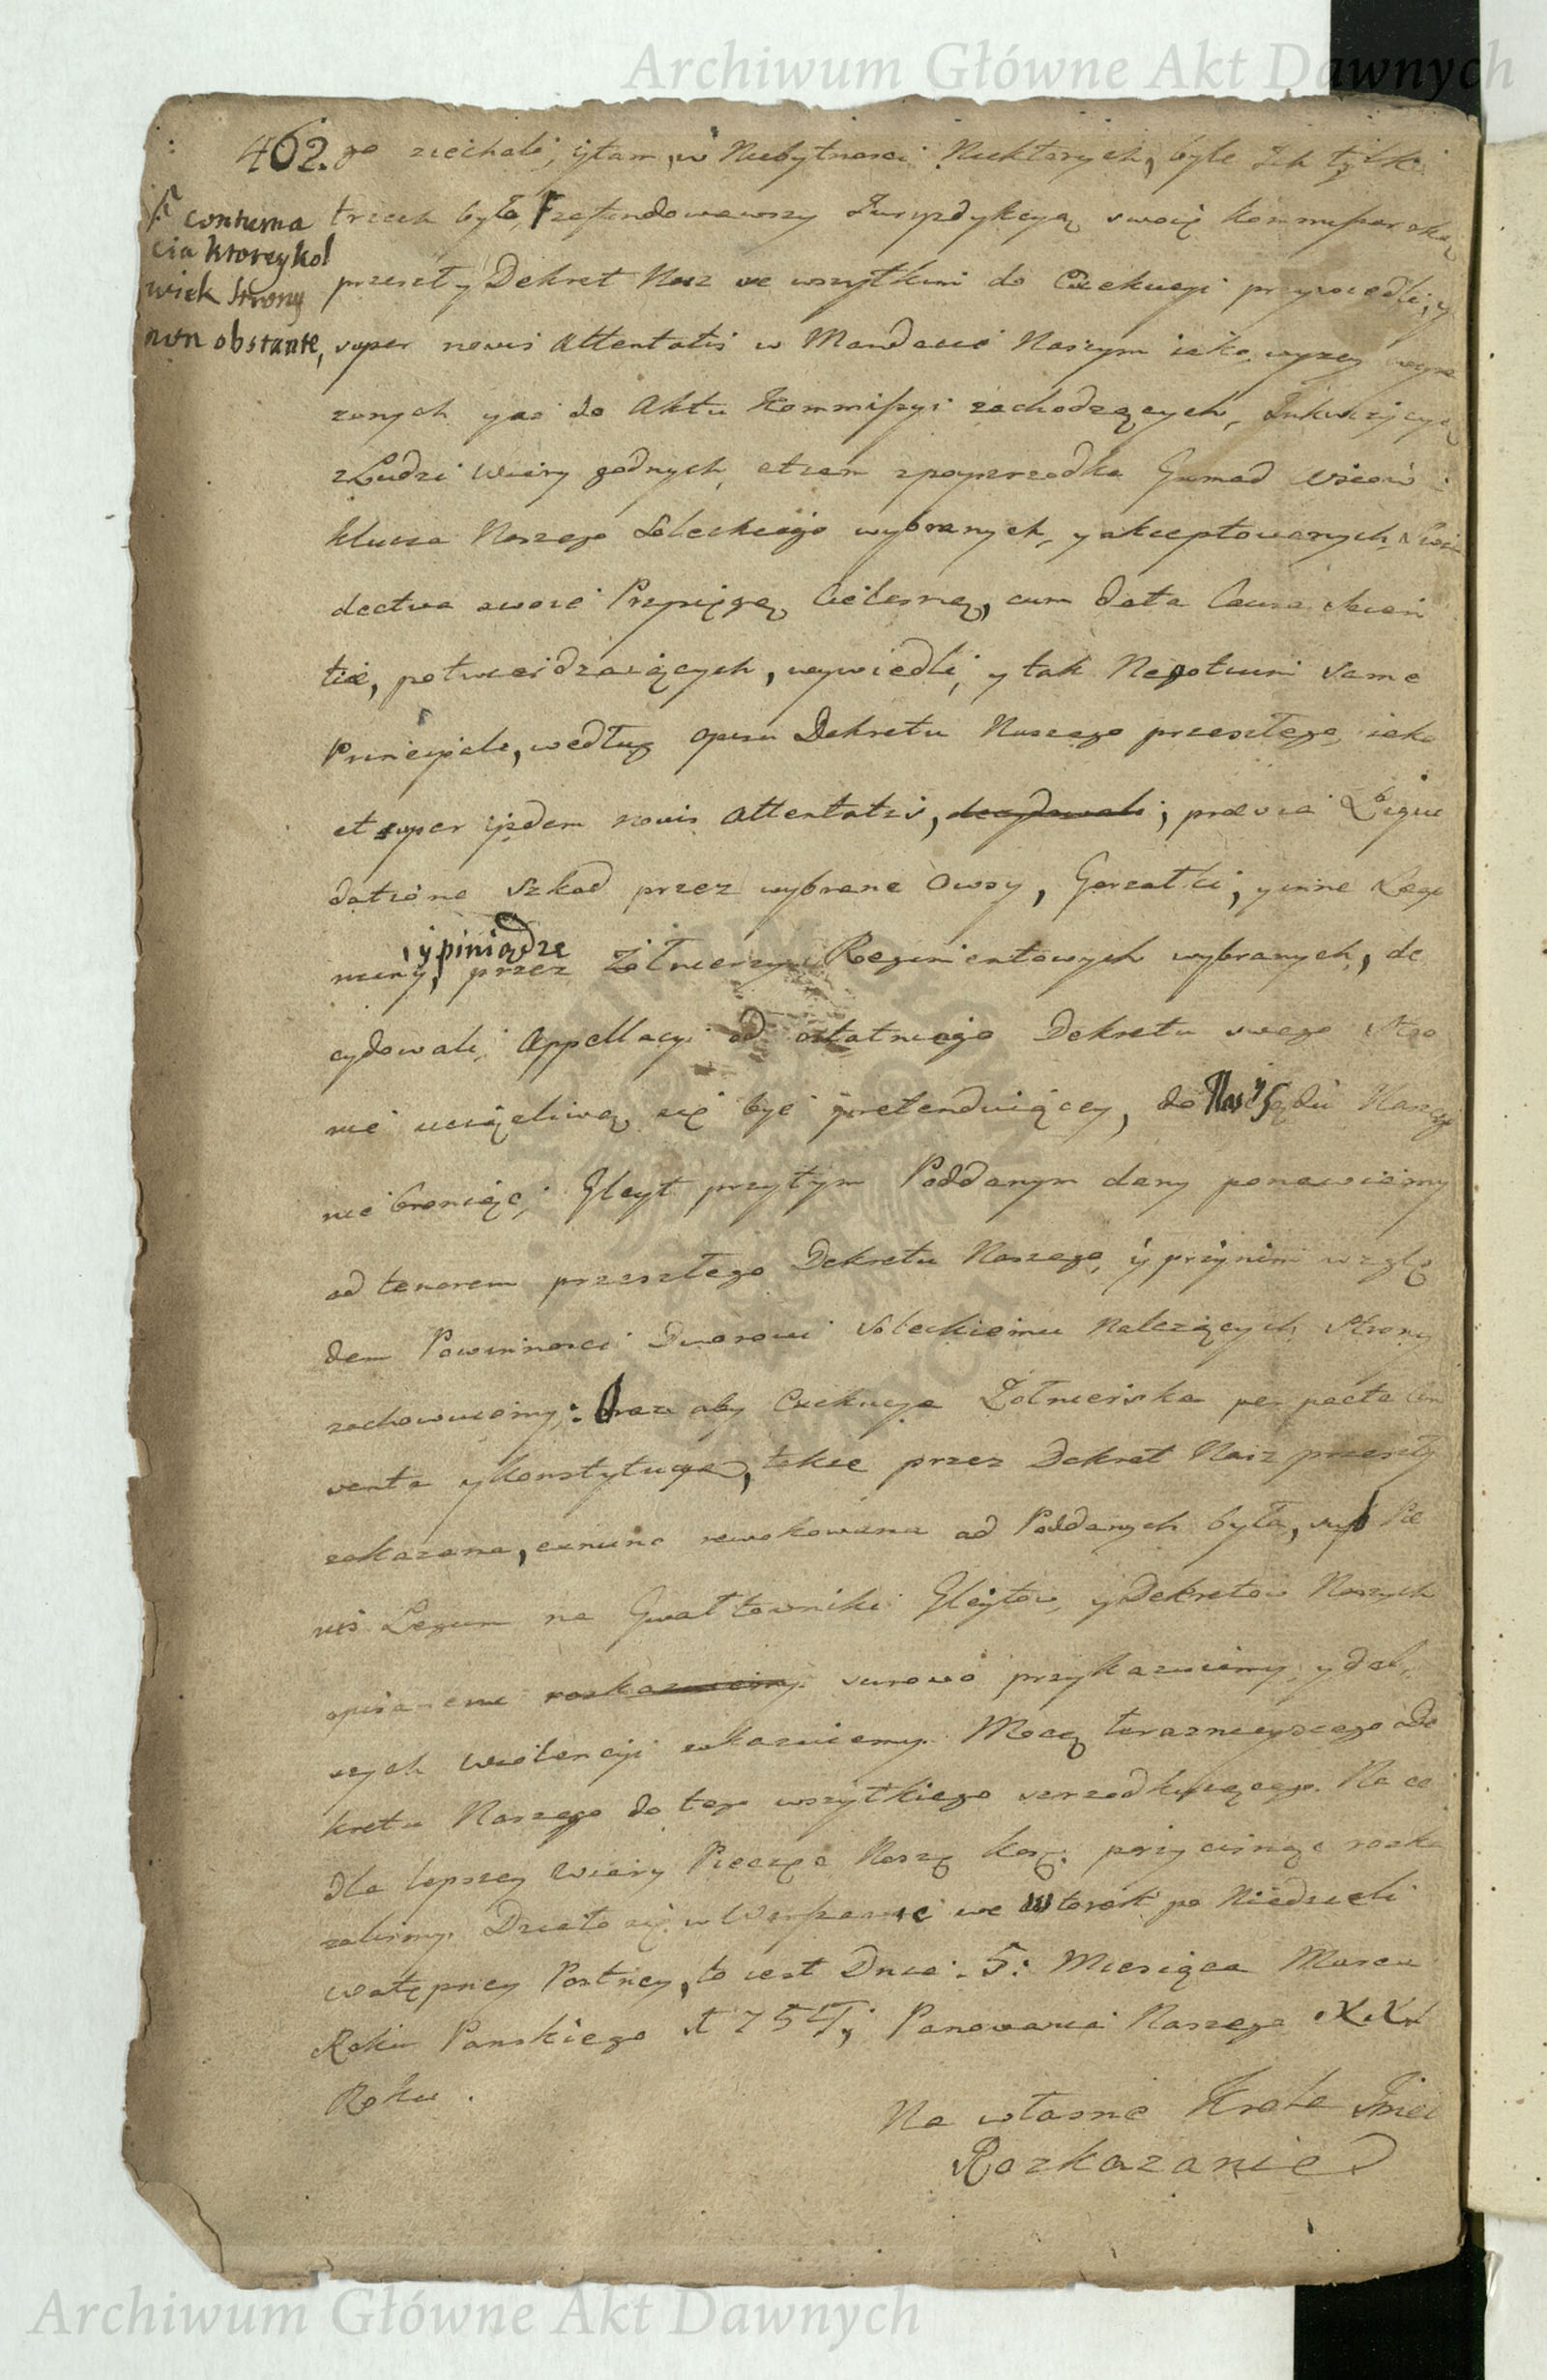 Archiwum Główne Akt Dawnych
462. go ziechali, y tam, w Niebytnosci Niektorych, byle Ich tylko
contuma
cia ktoreykol
wiek strony
non obstante,
trzech było, zafundowawszy Jurysdykcyą swoię Kommissarską
przeszły Dekret Nasz we wszytkim do Exekucyi przywiedli, y
super novis Attentatis w Mandacie Naszym iako wyzey
zonych y aż do Aktu Kommissyi zachodzących, Inkwizycyą
z Ludzi Wiary godnych, etiam zpoyszrodka Gromad Wsiow
klucza Naszego Soleckiego wybranych, y akceptowanych, Swia
dectwa swoie Przysięgą Cielesną, cum data Causa scien
tiæ, potwierdzaiących, wywiedli, y tak Negotium same
Principale, według opisu Dekretu Naszego przeszłego, iako
et super ijsdem novis Attentatis, decydowali; prævia Liqui
datione szkod przez wybrane Owsy, Gorzałki, y inne Legu
miny, y piniądze przez Zołnierzy Regimentowych wybranych, de
cydowali, Appellacyi od ostatniego Dekretu swego Stro
nie uciążliwą się być pretenduiącey, do Nas y Sądu Naszego
nie broniąc; Gleyt przytym Poddanym dany ponawiamy
ad tenorem przeszłego Dekretu Naszego, y przy nim wzglę
dem Powinnosci Dworowi Soleckiemu należących Strony
zachowuiemy: Oraz aby Exekucya Zołnierska per pacta Con
venta y Konstytucye, także przez Dekret Nasz przeszły
zakazana, exnunc rewokowana od Poddanych była, sub Pæ
nis Legum na Gwałtowniki Gleytow, y Dekretow Naszych
opisanemi roskazuiemy surowo przykazuiemy, y dal
szych wiolencyi zakazuiemy. Mocą teraznieyszego De
kretu Naszego do tego wszytkiego. Na co
dla lepszey Wiary Pieczęć Naszą Kor. przycisnąć roska
zalismy. Działo się w Warszawie we Wtorek po Niedzieli
Wstępney Postney, to iest Dnia 5. Miesiąca Marca
Roku Panskiego 1754, Panowania Naszego XXI
Roku.
Na własne Krola Jmci
Rozkazanie
Archiwum Główne Akt Dawnych